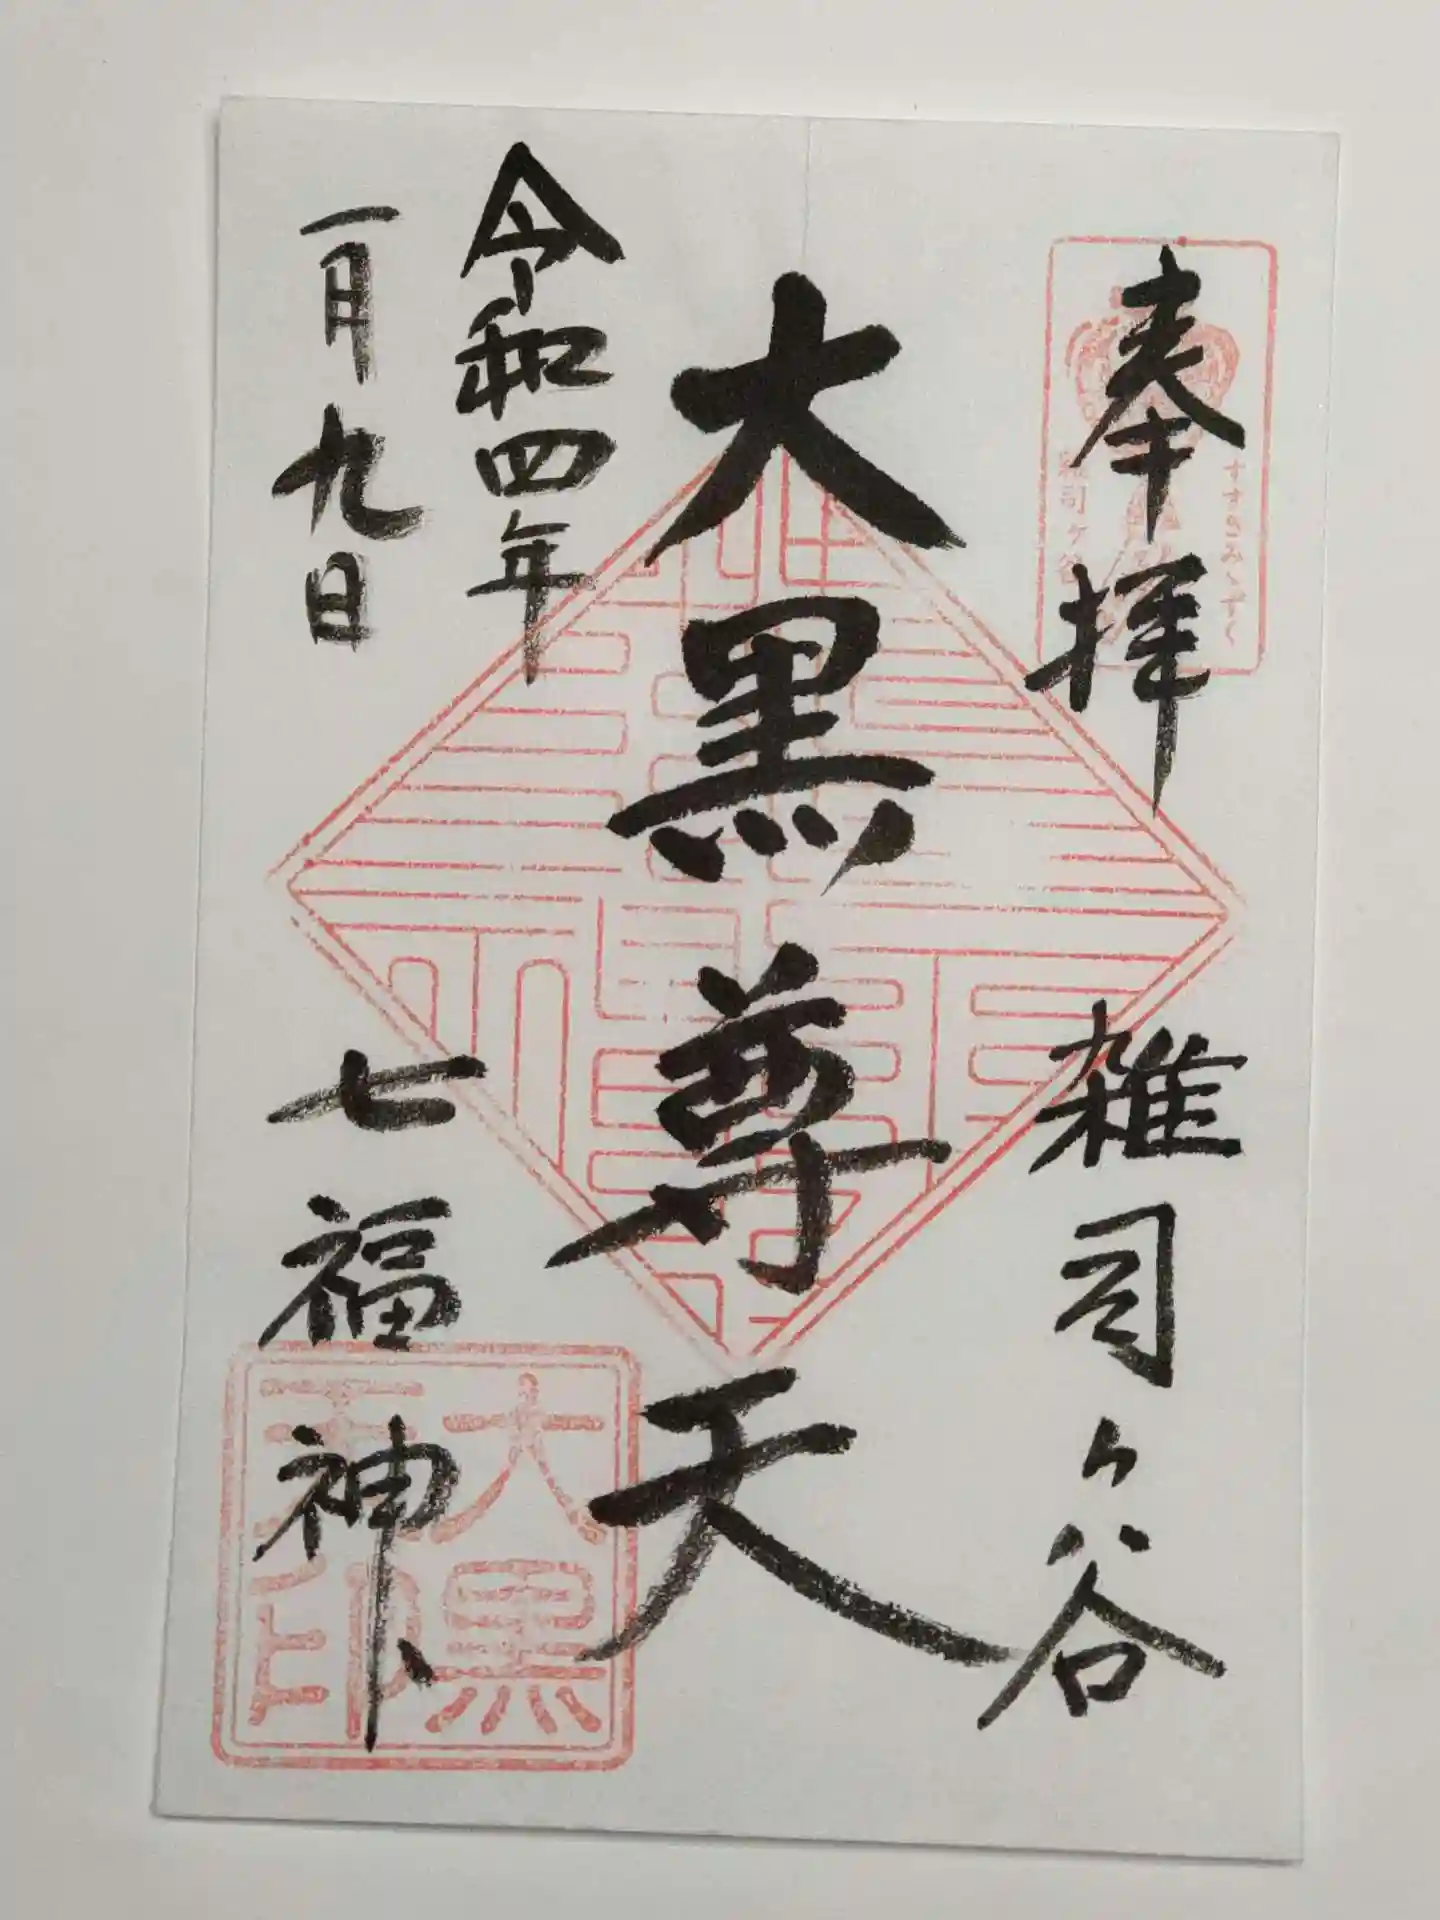 奉拝
雑司ケ谷
すすきみゝずく
雑司ケ谷
大黒尊天
令和四年
一月九日
七福神
大黒
天印